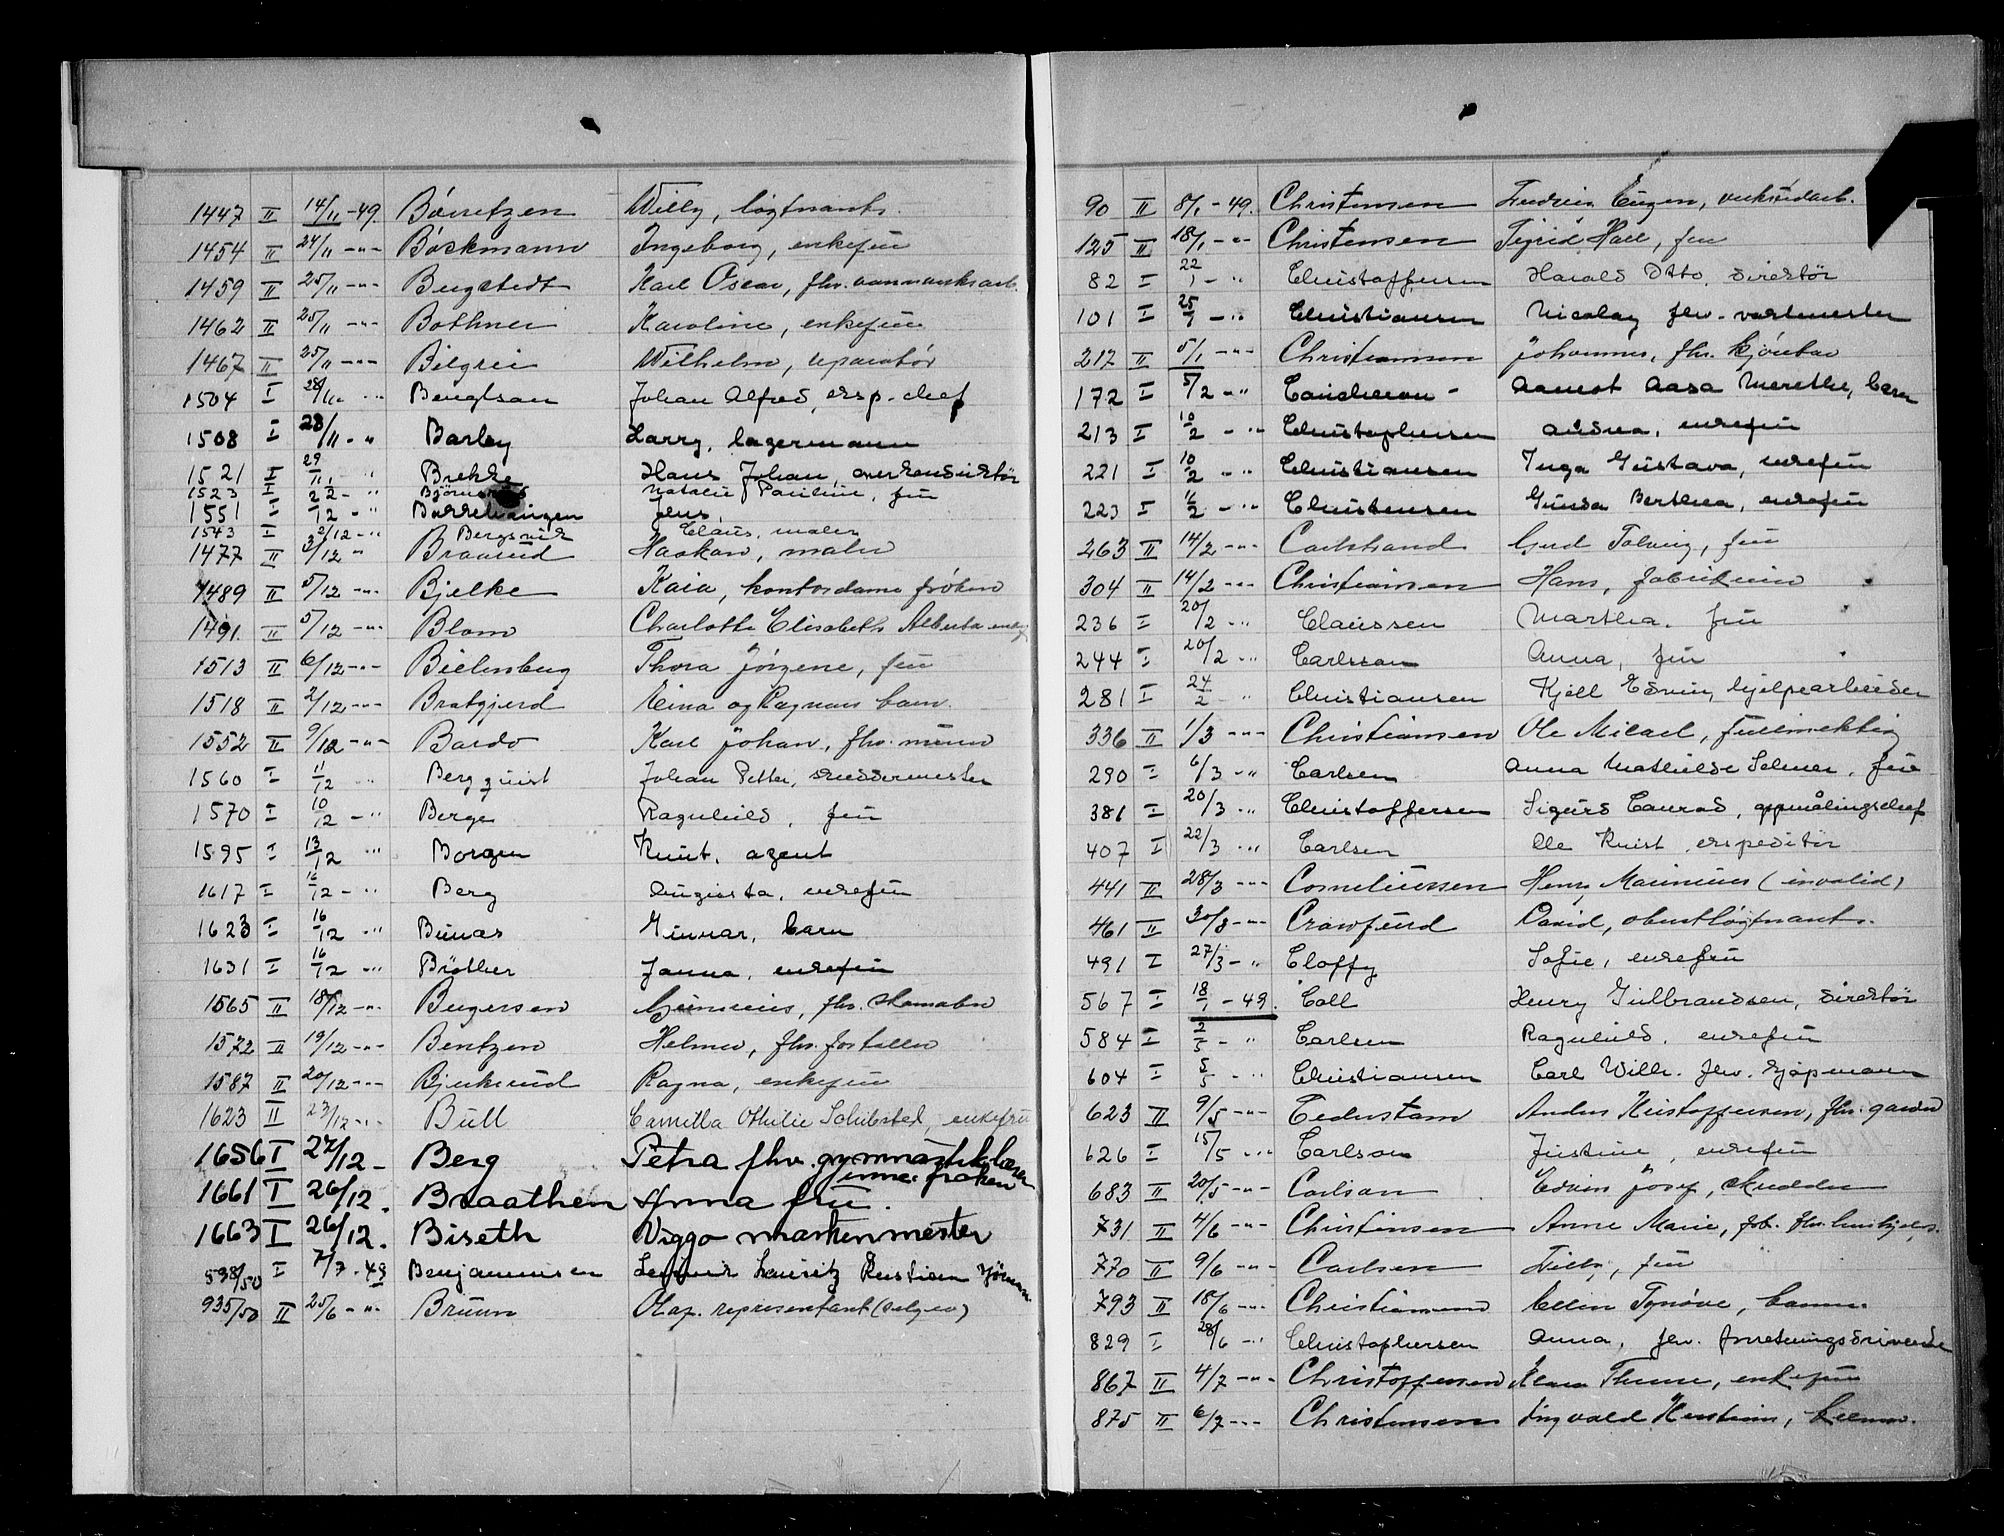 1447 II 14/11 -49. Börretzen Willy, løgtnants.
1454 II 24/11 -"- Böckmann Ingeborg, enkefru
1459 II 25/11 -"- Bugstedt Karl Oscar, fhv.
1462 II 25/11 -"- Bothner Karoline, enkefru
1467 II 25/11 -"- Bilgrei Wilhelm, reparatör
1504 I 28/11 " Bengtson Johan Alfred, eksp. chef
1508 I 28/11 - " Barley Harry, lagermann
1521 I 29/11 " Brekke Hans Johan, overkonduktör
1523 I 2/12 - " Natalie Pauline, fru
1551 I /12 - " Jens,
1543 I 2/12 - " Bergsvik Claus, maler
1477 II 3/12 " Braarud Haakon, maler
1489 II 5/12 -"- Bjelke Kaia, kontordame frøken
1491. II 5/12 -"- Blom Charlotte Elisabeth Alberta
1513 II 6/12 -"- Bielenberg Thora Jörgene, fru
1518 II 2/12 -"- Bratgjerd Eina og Ragnars barn.
1552 II 9/12 -"- Bardo Karl Johan, fhv. murer
1560 I 11/12 " Bergquist Johan Petter, skreddermester
1570 I 10/12 - " Berge Ragnhild, fru
1595 I 13/12 " Borgen Knut, agent
1617 I 16/12 - " Berg Augusta, enkefru
1623 I 16/12 " Bunæs Gunnar, barn
1631 I 16/12 -" Bröther Janna, enkefru
1565 II 18/12 -"- Birgersen fhv. skomaker
1572 II 19/12 -"- Bentzen Helmer, fhv. forteller
1587 II 20/12 -"- Bjerksrud Ragna, enkefru
1623 II 23/12 -"- Bull Camilla Othilie Schibsted, enkefru
1656 I 27/12 - Berg Petra fhv. gymnastiklærer
inne. frøken
1661 I 26/12. Braathen Anna fru.
1663 I 26/12. Biseth Viggo maskinmester
538/50 I 7/7 - 49 Benjaminsen Lauritz Kristian
935/50 II 25/6 -"- Bruun Olaf. representant (selger)
90 II 8/1 - 49. Christensen Fredrik Eugen, verkstedarb.
125 II 18/1 -"- Christensen Sigrid Hall, fru
82 I 22/1 - " Christoffersen Harald Otto, direktör
101 I 25/1 - " Christiansen Nicolay fhv. vaktmester
212 II 5/1 -"- Christiansen Johannes, fhv. kjörekar
172 I 5/2 - " Cancheron - Aamot Aasa Merethe, barn
213 I 10/2 - " Christophersen Andrea, enkefru
221 I 10/2 " Christiansen Inga Gustava, enkefru
223 I 16/2 - " Christensen Gunda Berthea, enkefru
263 II 14/2 -"- Carlstrand Gerd Solveig, fru
304 II 14/2 -"- Christiansen Hans, fabrikeier
236 I 20/2 - " Claussen Martha. fru
244 I 20/2 - " Carlsson Anna, fru
281 I 24/2 " Christiansen Kjell Edvin, hjelpearbeider
336 II 1/3 -"- Christiansen Ole Mikael, fullmektig
290 I 6/3 - " Carlsen Anna Mathilde Selmer, fru
381 I 20/3 - " Christoffersen Sigurd Conrad, oppmålingschef
407 I 22/3 - " Carlsen Ole Knist, expeditör
441 II 28/3 -"- Corneliussen Henry Marinius (invalid)
461 II 30/3 -"- Crawfurd David, oberstløgtnants.
491 I 27/3 - " Cloffy Sofie, enkefru
567 I 18/1 - 49. Coll Henry Gulbrandsen, direktör
584 I 2/5 - " Carlsen Ragnhild, enkefru
604 I 5/5 - " Christiansen Carl Wilh. fhv. kjøpmann
623 II 9/5 -"- Cederstam Anders Kristoffersen, fhv.
626 I 15/5 -" Carlson Justine, enkefru
683 II 20/5 -"- Carlson Edvin Josef, skredder
731 II 4/6 -"- Christensen Anne Marie, frk. fhv. hushjelp.
770 II 9/6 -"- Carlsen fru
793 II 18/6 -"- Christiansen Synøve, barn.
829 I 28/6 -" Christophersen Anna, fhv. forretningsdrivende
867 II 4/7 -"- Christoffersen Thune, enkefru
875 II 6/7 -"- Christensen Ingvald Kristian,